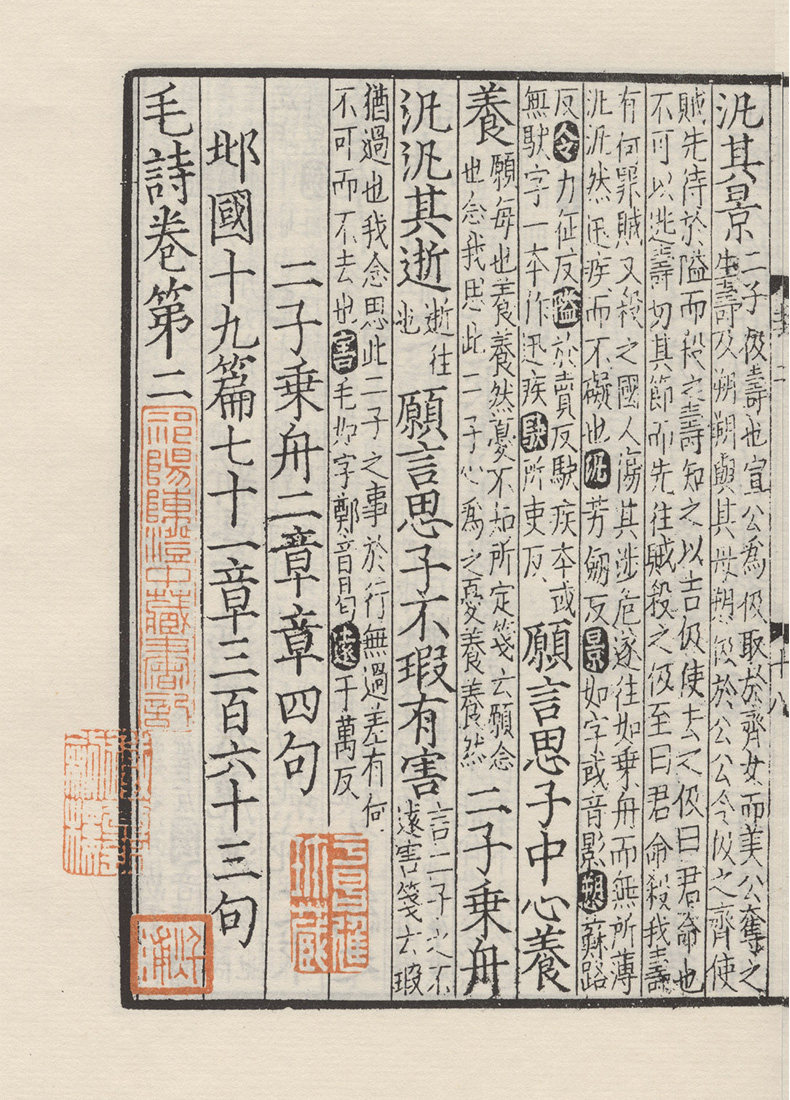 汎其景
二子伋壽也宣公為伋取於齊女而美公奪之
生壽及朔朔與其母愬伋於公公令伋之齊使
賊先待於隘而殺之壽知之以告伋使去之伋曰君命也
不可以逃壽窃其節而先往賊殺之伋至曰君命殺我壽
有何罪賊又殺之國人傷其涉危遂往如乘舟而無所薄
汎汎然迅疾而不礙也汎芳劒反景如字或音影愬蘇路
反令力征反隘於賣反駃疾本或
無駃字一本作迅疾駃所吏反
願言思子中心養
養
願每也養養然憂不知所定箋云願念
也念我思此二子心為之憂養養然
二子乘舟
汎汎其逝
逝往
也
願言思子不瑕有害
言二子之不
遠害箋云瑕
猶過也我念思此二子之事於行無過差有何
不可而不去也害毛如字鄭音曷遠于萬反
二子乘舟二章章四句
邶國十九篇七十一章三百六十三句
毛詩卷第二
祁陽陳澄中藏書記
十八